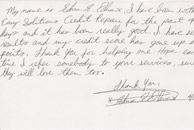 My name is
I have been with
Easy Solutions Credit Repair for the past
days and it has been really good. I have seen
results and my credit score has gone up
points. Thank you for helping me
this I refer somebody to your services,
they will love them too.
Thank You,